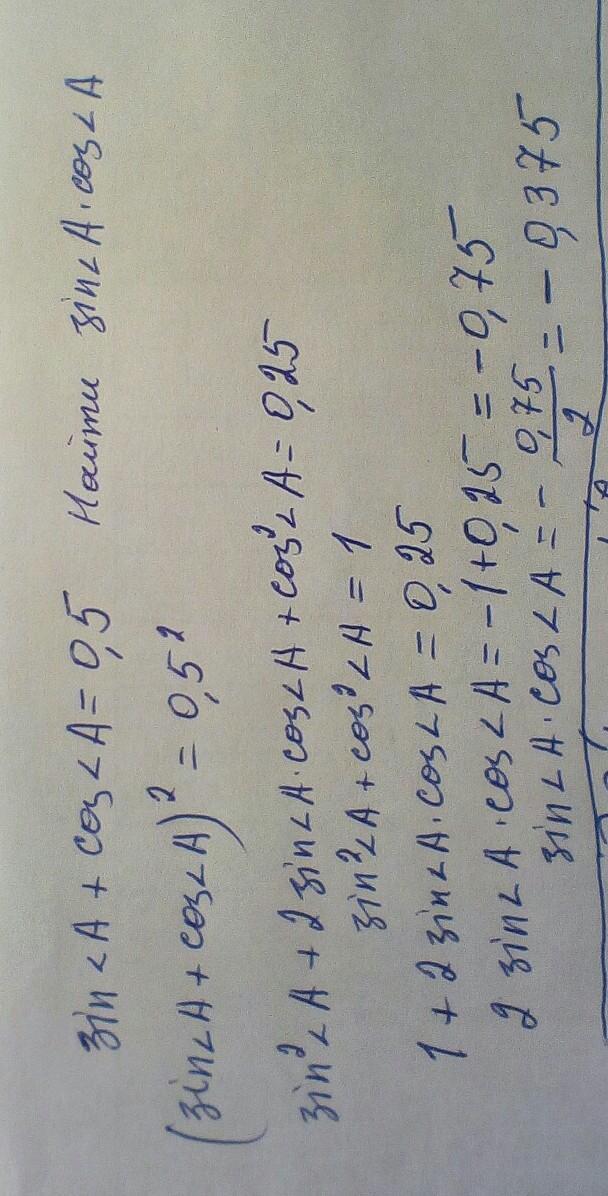 sin∠A + cos∠A = 0,5 Найти sin∠A·cos∠A
(sin∠A + cos∠A)² = 0,5²
sin²∠A + 2 sin∠A·cos∠A + cos²∠A = 0,25
sin²∠A + cos²∠A = 1
1 + 2 sin∠A·cos∠A = 0,25
2 sin∠A·cos∠A = -1 + 0,25 = -0,75
sin∠A·cos∠A = - 0,75/2 = - 0,375